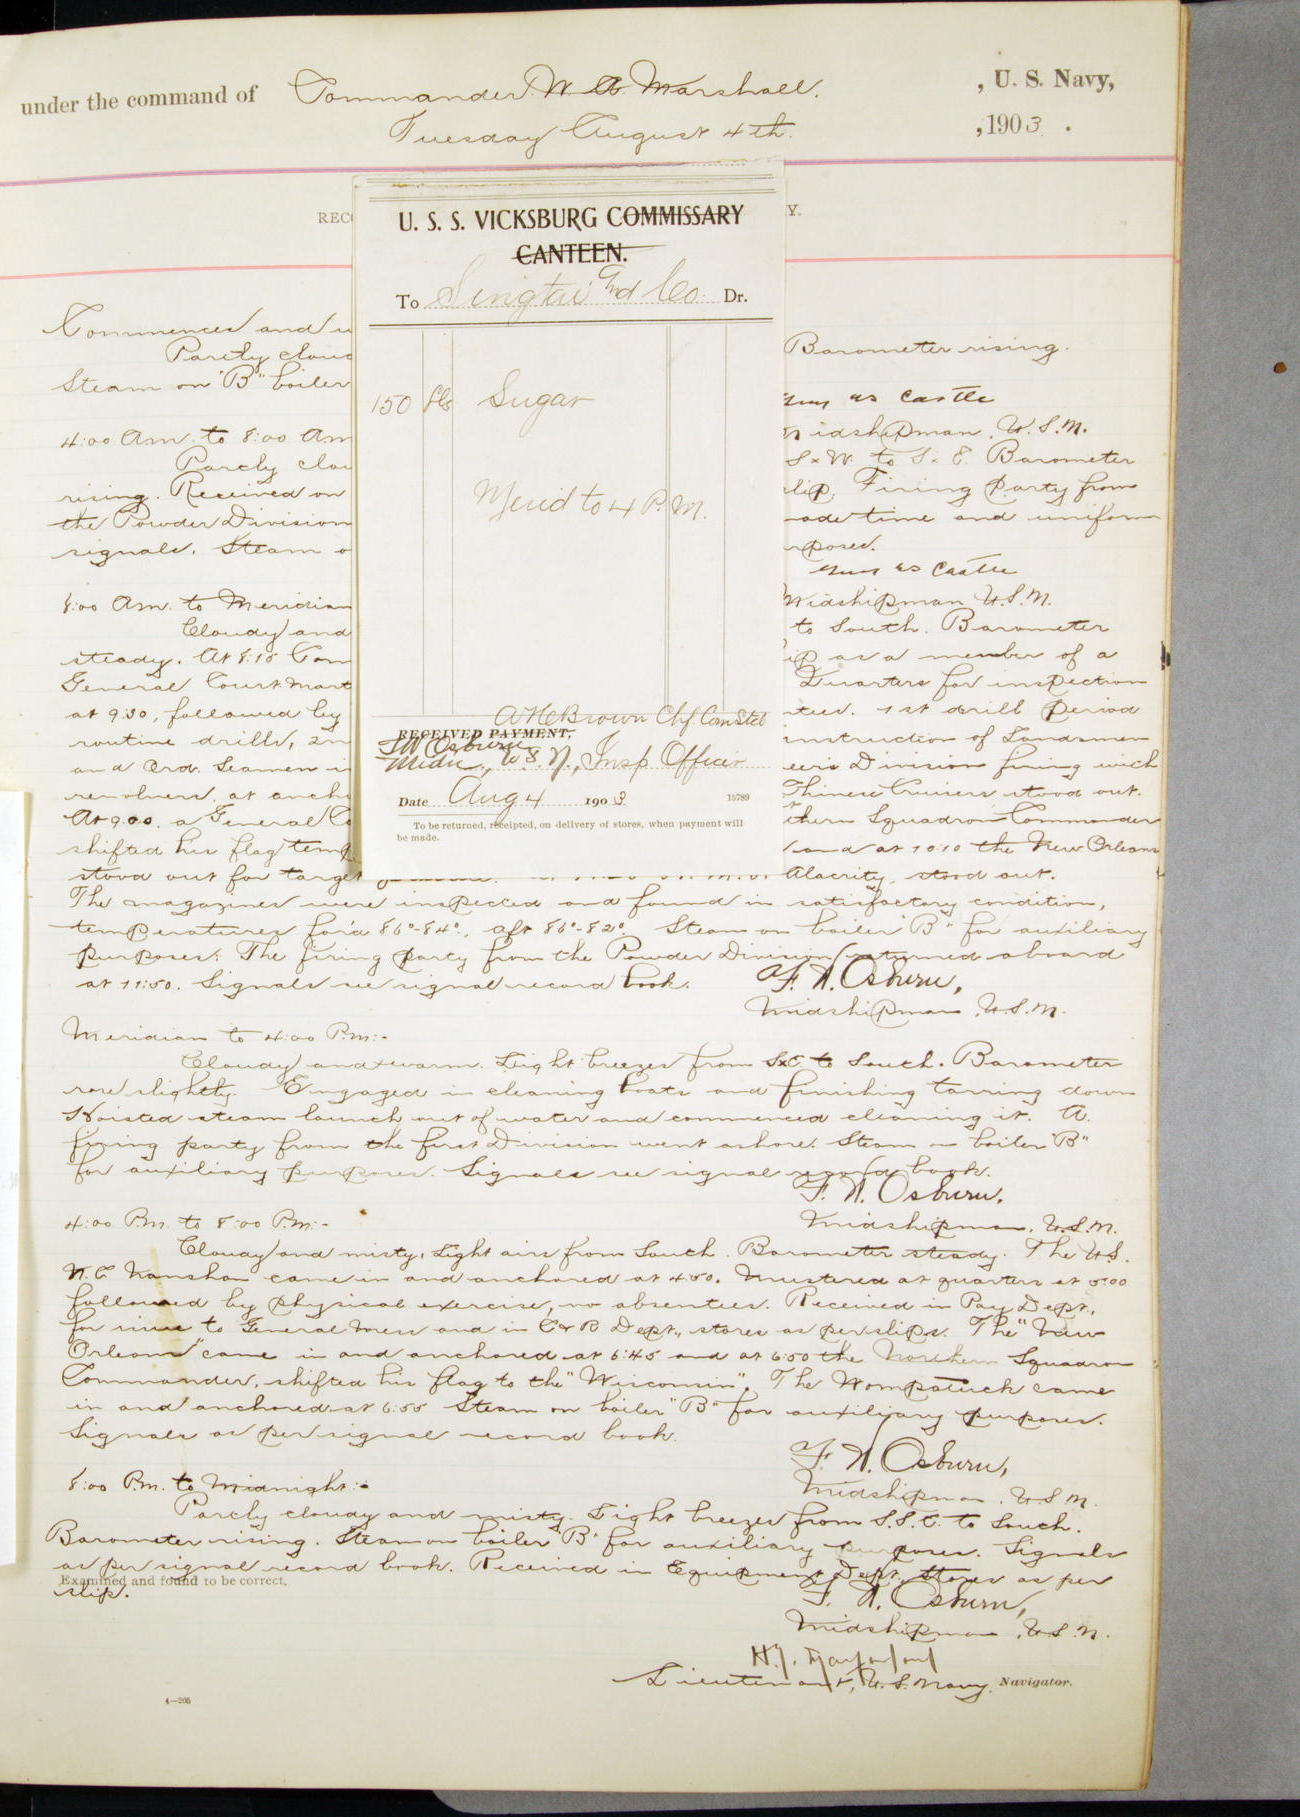 under the command of Commander W. A. Marshall. , U. S. Navy,
Tuesday August 4th. , 1903 .
REC
Y.
U. S. S. VICKSBURG COMMISSARY
CANTEEN.
To Singtai And Co. Dr.
150 lbs Sugar
Merid to 4 P. M.
A H Brown Chf Com Std
RECEIVED PAYMENT,
F W Osburn
Midn., U. S. N., Insp. Officer
Date Aug 4 1903 15789
To be returned, receipted, on delivery of stores, when payment will
be made.
Commences and
Partly Barometer rising.
Steam on "B" boiler
as Castle
4:00 Am. to 8:00 Am
Midshipman, U.S.N.
Partly S x W. to S x E. Barometer
rising. Received on slip. Firing party from
the Powder Division time and uniform
signals. Steam
as Castle
8:00 Am. to Meridian
Midshipman U.S.N.
Cloudy and to South. Barometer
steady. At 8:15 as a member of a
General Court Quarters for inspection
at 9:30, followed by 1st drill period
routine drills, instruction of Landsmen
and Ord. Seamen Division firing with
revolvers, at Chinese Cruisers stood out.
At 9:00. a General Squadron Commander
shifted his flag and at 10:10 the New Orleans
stood out for target Alacrity, stood out.
The magazines were inspected and found in satisfactory condition,
temperatures for'd 86°-84°, aft 86°-82°. Steam on boiler "B" for auxiliary
purposes. The firing party from the Powder Division returned aboard
at 11:50. Signals see signal record book.
F. W. Osburn,
Midshipman, U.S.N.
Meridian to 4:00 P.m:-
Cloudy and warm. Light breezes from SxE to South. Barometer
rose slightly. Engaged in cleaning boats and finishing tarring down
Hoisted steam launch out of water and commenced cleaning it. A.
firing party from the first Division went ashore. Steam on boiler "B"
for auxiliary purposes. Signals see signal record book.
F. W. Osburn,
Midshipman, U.S.N.
4:00 P.m. to 8:00 P.m:-
Cloudy and misty. Light airs from South. Barometer steady. The U.S.
N. C. Nanshan came in and anchored at 4:50. Mustered at quarters at 5:00
followed by physical exercise, no absentees. Received in Pay Dept.,
for issue to General Mess and in C & R Dept., stores as per slips. The "New
Orleans" came in and anchored at 6:45 and at 6:50 the Northern Squadron
Commander, shifted his flag to the "Wisconsin". The Wompatuck came
in and anchored at 6:55 Steam on boiler "B" for auxiliary purposes.
Signals as per signal record book.
F. W. Osburn,
Midshipman, U.S.N.
8:00 P.m. to Midnight:-
Partly cloudy and misty. Light breezes from S.S.E. to South.
Barometer rising. Steam on boiler "B" for auxiliary purposes. Signals
as per signal record book. Received in Equipment Dept., stores as per
Examined and found to be correct,
slip.
F. W. Osburn,
Midshipman, U.S.N.
Lieutenant, U. S. Navy, Navigator.
4—205